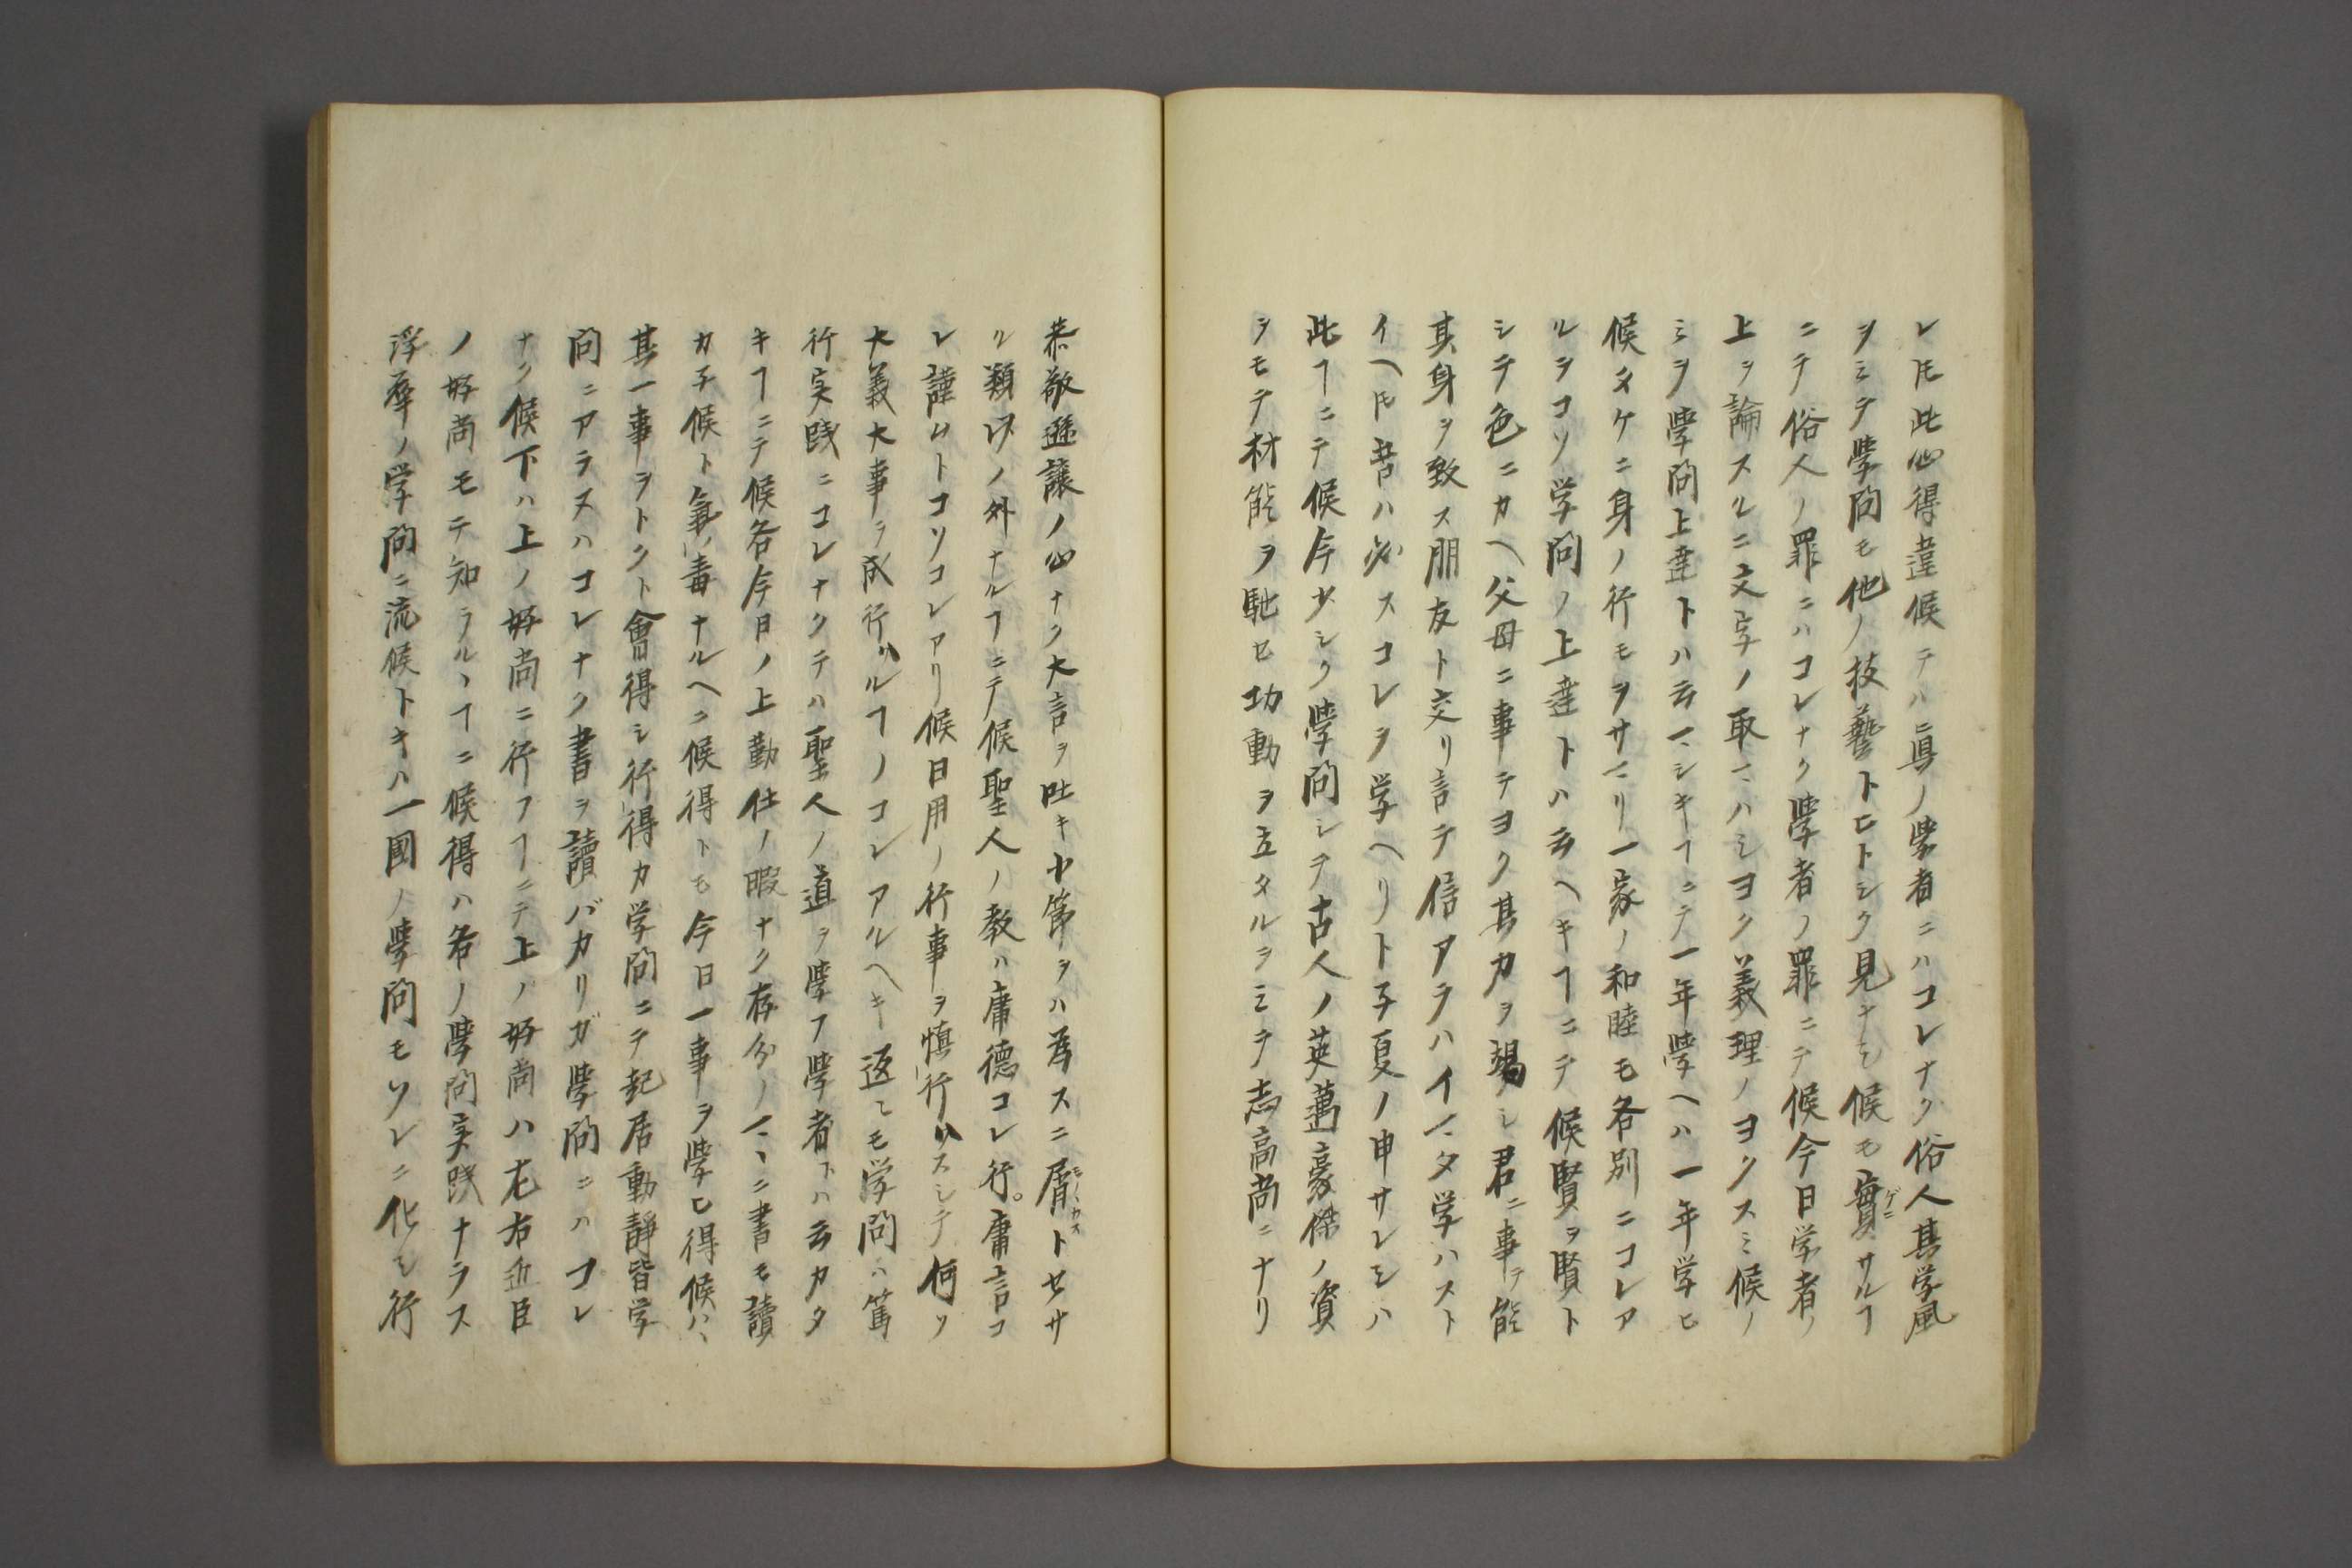 レ𪜈此心得違候テハ眞ノ學者ニハコレナク俗人其学風
ヲミテ學問モ他ノ技藝トヒトシク見ナシ候モ實サルヿ
ニテ俗人ノ罪ニハコレナク學者ノ罪ニテ候今日学者ノ
上ヲ論スルニ文字ノ取マハシヨク義理ノヨクスミ候ノ
ミヲ學問上達トハ云マシキヿニテ一年學ヘハ一年学ヒ
候タケニ身ノ行モヲサマリ一家ノ和睦モ各別ニコレア
ルヲコソ学問ノ上達トハ云ヘキヿニテ候賢ヲ賢ト
シテ色ニカヘ父母ニ事テヨク其力ヲ竭シ君ニ事テ能
其身ヲ致ス朋友ト交リ言テ信アラハイマタ学ハスト
イヘ𪜈吾ハ必スコレヲ学ヘリト子夏ノ申サレシハ
此ヿニテ候今少シク學問シテ古人ノ英邁豪傑ノ資
ヲモテ材能ヲ馳セ功動ヲ立タルヲミテ志高尚ニナリ
恭敬遜譲ノ心ナク大言ヲ吐キ小節ヲハ為スニ屑トセサ
ル類以ノ外ナルヿニテ候聖人ノ教ハ庸徳コレ行。庸言コ
レ謹ムトコソコレアリ候日用ノ行事ヲ慎行ハスシテ何ソ
大義大事ヲ成行ハルヿノコレアルヘキ返〻モ学問ハ篤
行実践ニコレナクテハ聖人ノ道ヲ學フ學者トハ云カタ
キヿニテ候各今日ノ上勤仕ノ暇ナク存分ノマヽニ書モ讀
カ子候ト氣ノ毒ナルヘク候得トモ今日一事ヲ學ヒ得候ハヽ
其一事ヲトクト會得シ行得カ学問ニテ起居動静皆学
問ニアラヌハコレナク書ヲ讀バカリガ學問ニハコレ
ナク候下ハ上ノ好尚ニ行フヿニテ上ノ好尚ハ左右近臣
ノ好尚モテ知ラルヽヿニ候得ハ各ノ學問実践ナラス
浮華ノ学問ニ流候トキハ一國ノ學問モソレニ化シ行